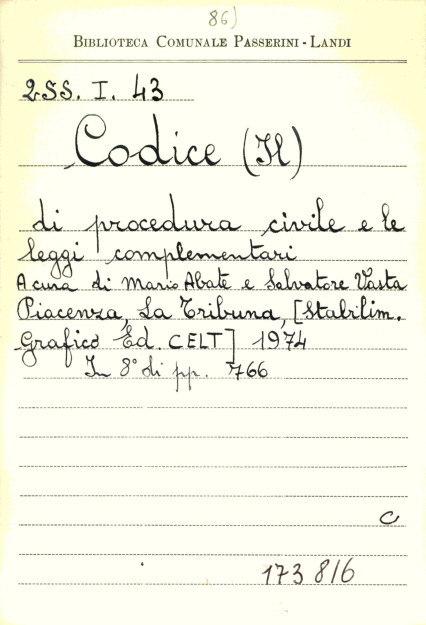 86)
BIBLIOTECA COMUNALE PASSERINI - LANDI
2SS. I. 43
Codice (Il)
di procedura civile e le
leggi complementari
A cura di Mario Abate e Salvatore Vasta
Piacenza, La Tribuna, [Stabilim.
Grafico Ed. CELT] 1974
In 8° di pp. 766
C
173816